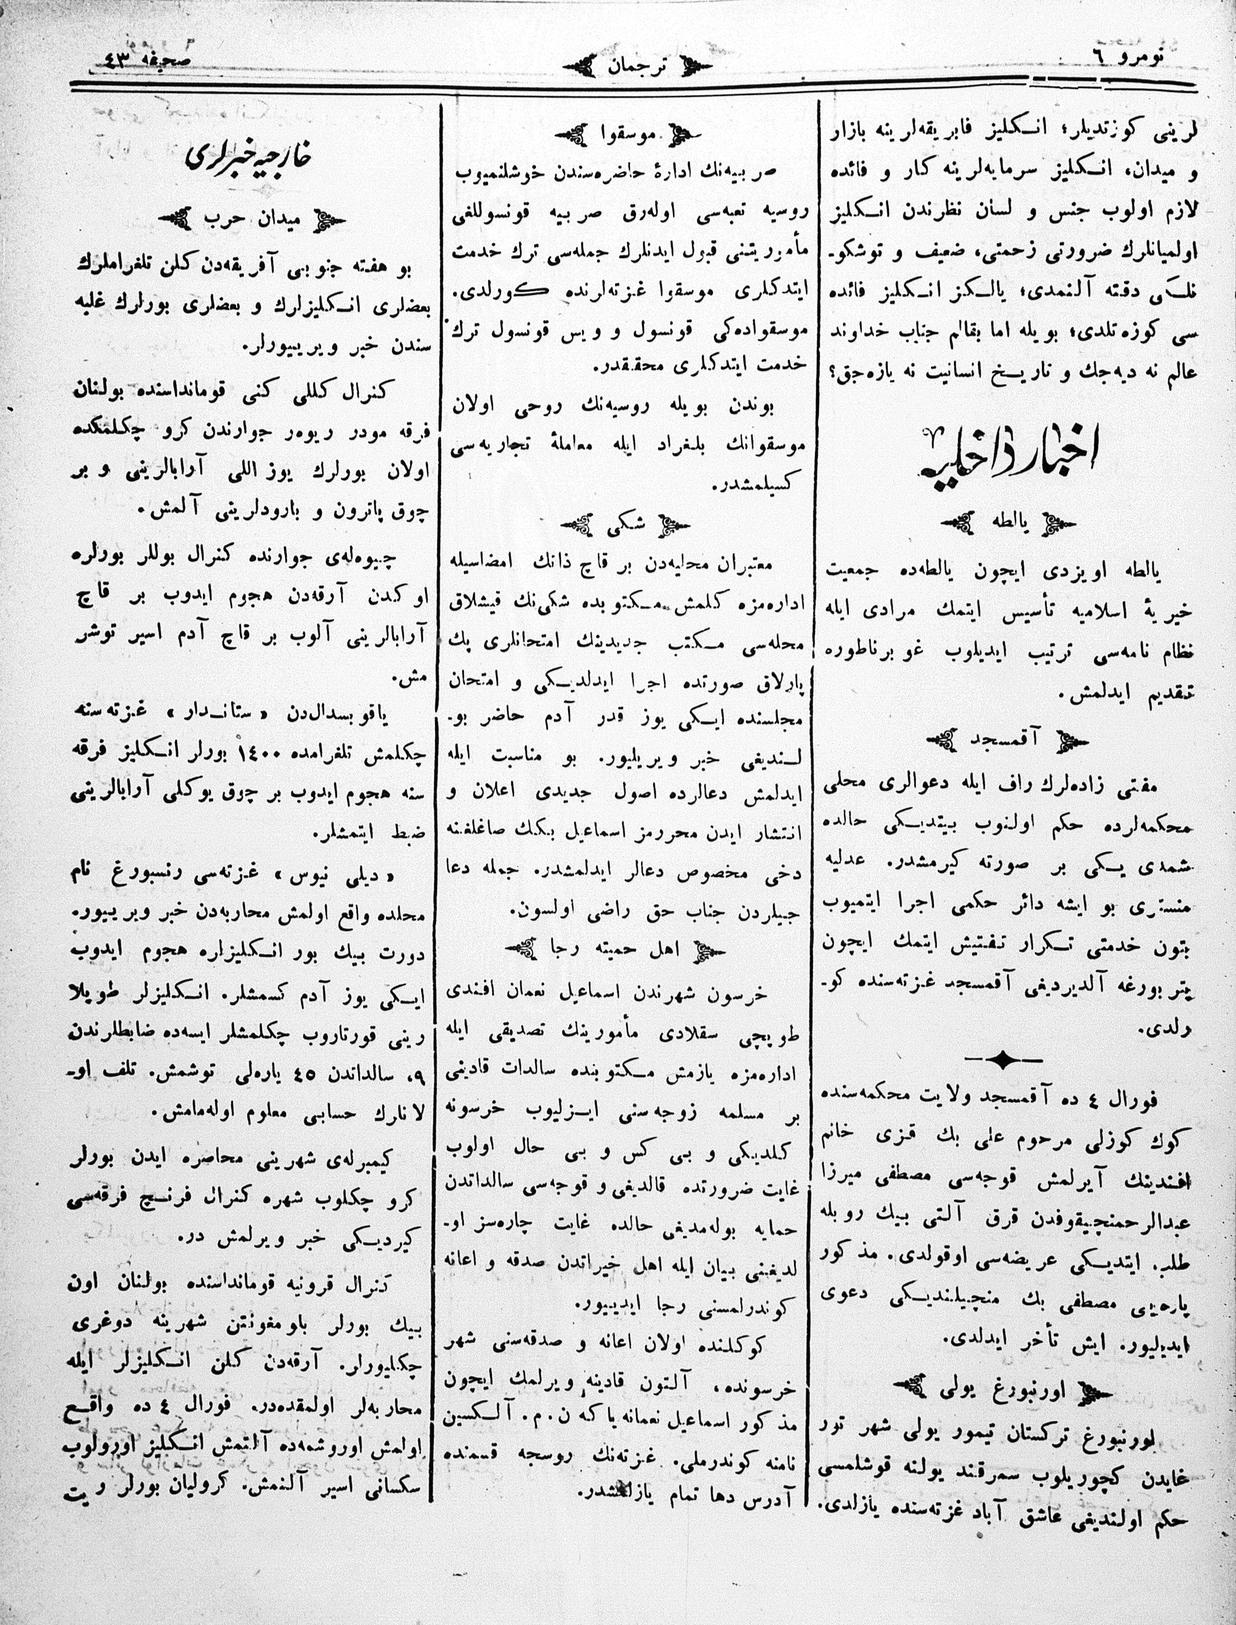 نومرو ٦
ترجمان
صحيفه ٤٣
لرينى كوزتديلر؛ انكليز فابريقه‌لرينه بازار
و ميدان، انكليز سرمايه‌لرينه كار و فائده
لازم اولوب جنس و لسان نظرندن انكليز
اولميانلرك ضرورتى زحمتى، ضعيف و توشكو-
نلكى دقته آلنمدى؛ يالكز انكليز فائده
سى كوزه‌تلدى؛ بويله اما بقالم جناب خداوند
عالم نه ديه‌جك و تاريخ انسانيت نه يازه‌جق؟
اخبار داخليه
يالطه
يالطه اويزدى ايچون يالطه‌ده جمعيت
خيريۀ اسلاميه تأسيس ايتمك مرادى ايله
نظام نامه‌سى ترتيب ايديلوب غوبرناطوره
تقديم ايدلمش.
آقمسجد
مفتى زاده‌لرك راف ايله دعوالرى محلى
محكمه‌لرده حكم اولنوب بيتديكى حالده
شمدى يكى بر صورته كيرمشدر. عدليه
منسترى بو ايشه دائر حكمى اجرا ايتميوب
بتون خدمتى تكرار تفتيش ايتمك ايچون
پتربورغه آلديرديغى آقمسجد غزته‌سنده كو-
رلدى.
فورال ٤ ده آقمسجد ولايت محكمه‌سنده
كوك كوزلى مرحوم على بك قزى خانم
افندينك آيرلمش قوجه‌سى مصطفى ميرزا
عبدالرحمنچيقوفدن قرق آلتى بيك روبله
طلب. ايتديكى عريضه‌سى اوقولدى. مذكور
پاره‌يى مصطفى بك منچيلنديكى دعوى
ايديليور. ايش تأخر ايدلدى.
اورنبورغ يولى
اورنبورغ تركستان تيمور يولى شهر تور
غايدن كچوريلوب سمرقند يولنه قوشلمسى
حكم اولنديغى عاشق آباد غزته‌سنده يازلدى.
موسقوا
صربيه‌نك ادارۀ حاضره‌سندن خوشلنميوب
روسيه تبعه‌سى اوله‌رق صربيه قونسوللغى
مأموريتنى قبول ايدنلرك جمله‌سى ترك خدمت
ايتدكلرى موسقوا غزته‌لرنده كورلدى.
موسقواده‌كى قونسول و ويس قونسول ترك
خدمت ايتدكلرى محققدر.
بوندن بويله روسيه‌نك روحى اولان
موسقوانك بلغراد ايله معاملۀ تجاريه‌سى
كسيلمشدر.
شكى
معتبران محليه‌دن بر قاچ ذاتك امضاسيله
اداره‌مزه كلمش مكتوبده شكى‌نك قيشلاق
محله‌سى مكتب جديدينك امتحانلرى پك
پارلاق صورتده اجرا ايدلديكى و امتحان
مجلسنده ايكى يوز قدر آدم حاضر بو-
لنديغى خبر ويريليور. بو مناسبت ايله
ايدلمش دعالرده اصول جديدى اعلان و
انتشار ايدن محررمز اسماعيل بكك صاغلغنه
دخى مخصوص دعالر ايدلمشدر. جمله دعا
جيلردن جناب حق راضى اولسون.
اهل حميته رجا
خرسون شهرندن اسماعيل نعمان افندى
طوپچى سقلادى مأمورينك تصديقى ايله
اداره‌مزه يازمش مكتوبنده سالدات قادينى
بر مسلمه زوجه‌سنى ايزليوب خرسونه
كلديكى و بى كس و بى حال اولوب
غايت ضرورتده قالديغى و قوجه‌سى سالداتدن
حمايه بوله‌مديغى حالده غايت چاره‌سز او-
لديغنى بيان ايله اهل خيراتدن صدقه و اعانه
كوندرلمسنى رجا ايدييور.
كوكلنده اولان اعانه و صدقه‌سنى شهر
خرسونده، آلتون قادينه ويرلمك ايچون
مذكور اسماعيل نعمانه ياكه ن.م. آلكسين
نامنه كوندرملى. غزته‌نك روسجه قسمنده
آدرس دها تمام يازلمشدر.
خارجيه خبرلرى
ميدان حرب
بو هفته جنوبى آفريقه‌دن كلن تلغراملرك
بعضلرى انكليزلرك و بعضلرى بورلرك غلبه
سندن خبر ويرييورلر.
كنرال كللى كنى قومانداسنده بولنان
فرقه مودر ريوەر جوارندن كرو چكلمكده
اولان بورلرك يوز اللى آرابالرينى و بر
چوق پاترون و بارودلرينى آلمش.
چيوه‌له‌ى جوارنده كنرال بوللر بورلره
اوكدن آرقه‌دن هجوم ايدوب بر قاچ
آرابالرينى آلوب بر قاچ آدم اسير توشر
مش.
ياقوبسدال‌دن «ستاندار» غزته‌سنه
چكلمش تلغرامده ١٤٠٠ بورلر انكليز فرقه
سنه هجوم ايدوب بر چوق يوكلى آرابالرينى
ضبط ايتمشلر.
«ديلى نيوس» غزته‌سى رنسبورغ نام
محلده واقع اولمش محاربه‌دن خبر ويرييور.
دورت بيك بور انكليزلره هجوم ايدوب
ايكى يوز آدم كسمشلر. انكليزلر طوپلا
رينى قورتاروب چكلمشلر ايسه‌ده ضابطلرندن
٩، سالداتدن ٤٥ ياره‌لى توشمش. تلف او-
لانلرك حسابى معلوم اوله‌مامش.
كيمبرله‌ى شهرينى محاصره ايدن بورلر
كرو چكلوب شهره كنرال فرنچ فرقه‌سى
كيرديكى خبر ويرلمش در.
كنرال قرونيه قومانداسنده بولنان اون
بيك بورلر بلومفونتن شهرينه دوغرى
چكليورلر. آرقه‌دن كلن انكليزلر ايله
محاربه‌لر اولمقده‌در. فورال ٤ ده واقع
اولمش اوروشمه‌ده آلتمش انكليز اورولوب
سكسانى اسير آلنمش. كروليان بورلر ويت